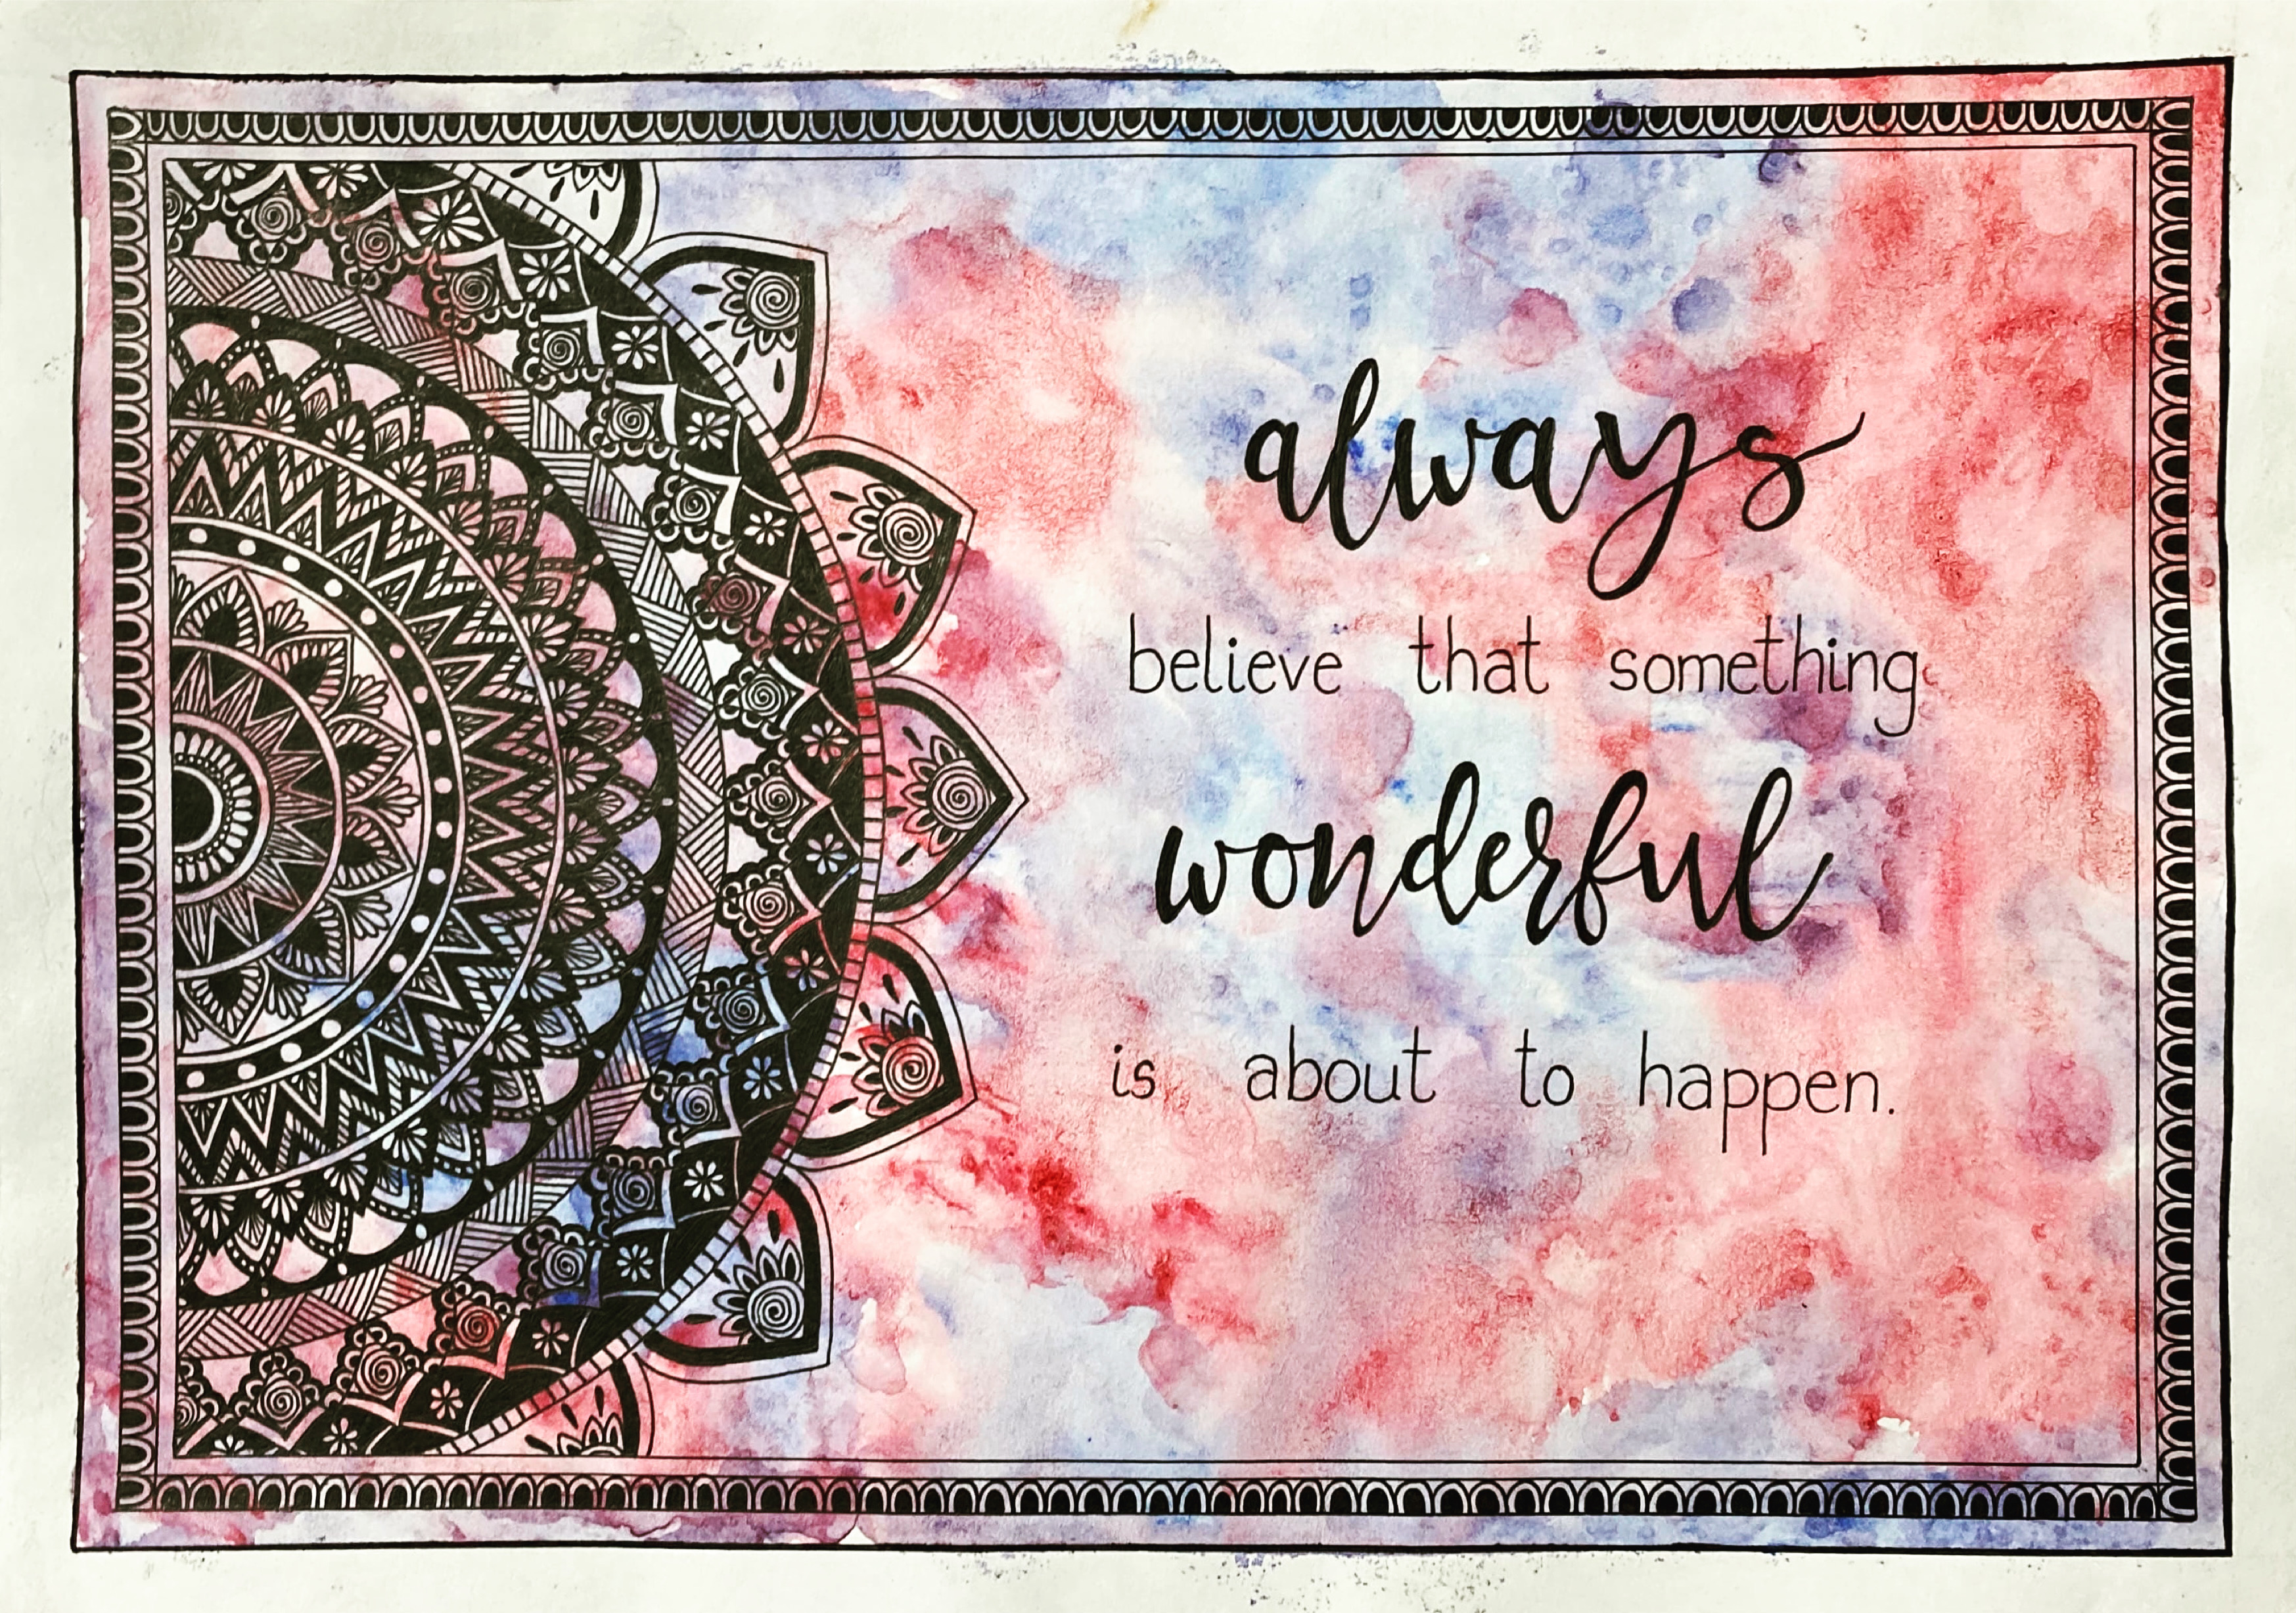 always
believe that something
wonderful
is about to happen.